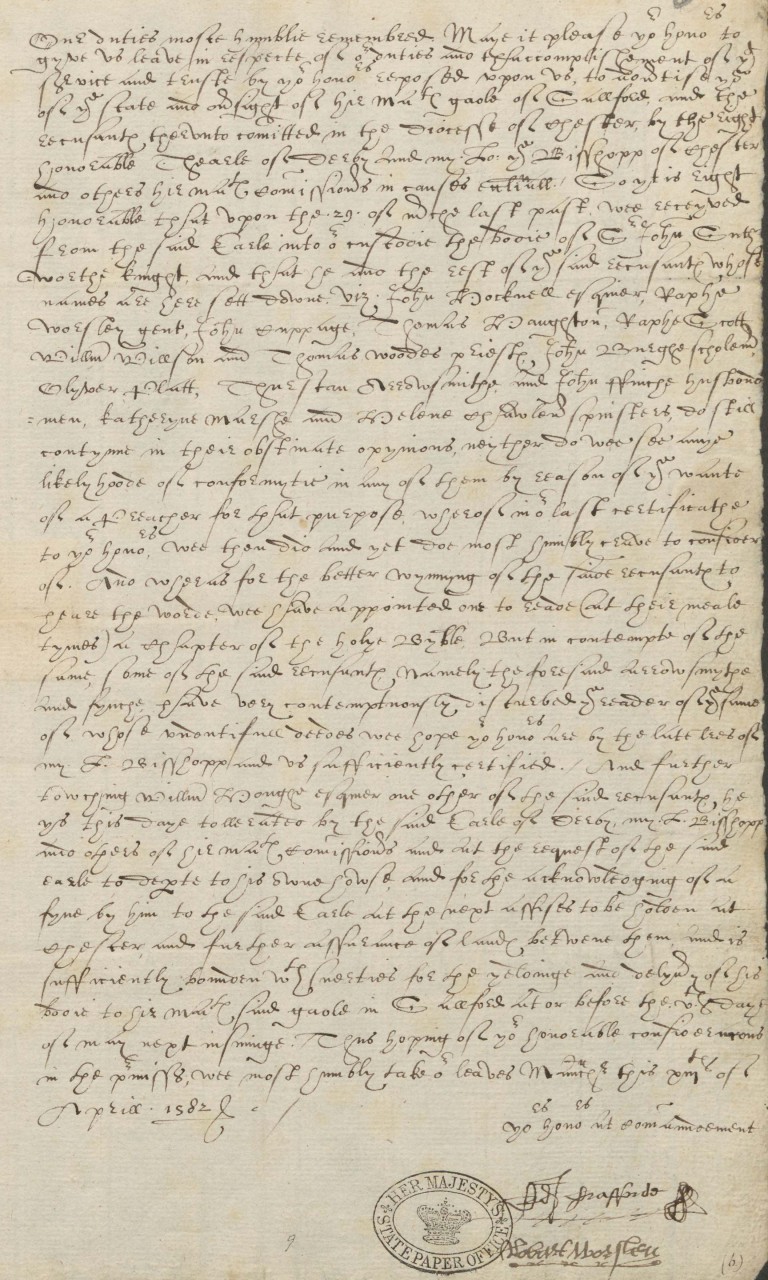 Our duties moste humblie remembred. Maye it please yor honors to
gyve us leave in respecte of or duties and thaccomplishement of ye
service and truste by yor honors reposed upon us, to advertise yor
of ye state and of his Matie gaole of Sallford, and the
recusants therunto comitted in the diocesse of Chester, by the right
honorable Thearle of Derby and my Lo: ye Bisshopp of Chester
and others hir Mats Comissioners in causes ecclicall. So yt is right
honorable that upon the .29. of Mche last past, wee receyved
from the said Earle into or custodie the bodie of Sr John South
worthe knight, and that he and the rest of ye said recusants whose
names are here sett downe, viz. John Hocknell esquier, Raphe
Worsley gent, John Cuppage, Thomas Haughton, Raphe Scott
Willm Wilson and Thomas Woodes priests, John Burghe scholemr
Olyver Platt, Thurstan Arrowsmithe and John ffinche husband
=men, Katheryne Marshe and Helene spinsters, do still
contynue in their obstinate opynions, neither do wee see anye
likelyhoode of conformytie in any of them by reason of ye wante
of a Preacher for that purpose, wherof in or last certificathe
to yor honors, wee then did and yet doe most humbly crave to consider
of. And wheras for the better wynnyng of the said recusants to
heare the worde, wee have appointed one to reade (at their meale
tymes) a Chapter of the holye Byble, But in contempte of the
same, some of the said recusants, namely the foresaid Arrowsmythe
and fynche, have very contemptuously disturbed ye reader of ye same
of whose undutifull deedes wee hope yor honors are by the late lres of
my L. Bisshopp and us sufficiently certified. / And further
towching Willm Houghe esquier one other of the said recusants, he
ys this daye tollerated by the said Earle of Derby, my L. Bisshopp
and others of hir Mats Comissioners and at the request of the said
earle to depte to his owne howse, and for the acknowledging of a
fyne by him to the said Earle at the next assises to be holden at
Chester, and further assurance of lands betwene them, and is
sufficiently bounden wth suerties for the yeldinge and delyvy of his
bodie to hir Mats said gaole in Sallford at or before the daye
of may next insuinge. Thus hoping of yor honorable consideracons
in the pmisss, wee most humbly take or leaves Manchr this xiijth of
Aprill. 1582
yor honors at Comaundement
Ed Trafforde
Robert Worsley
HER MAJESTY'S STATE PAPER OFFICE
9
(6)